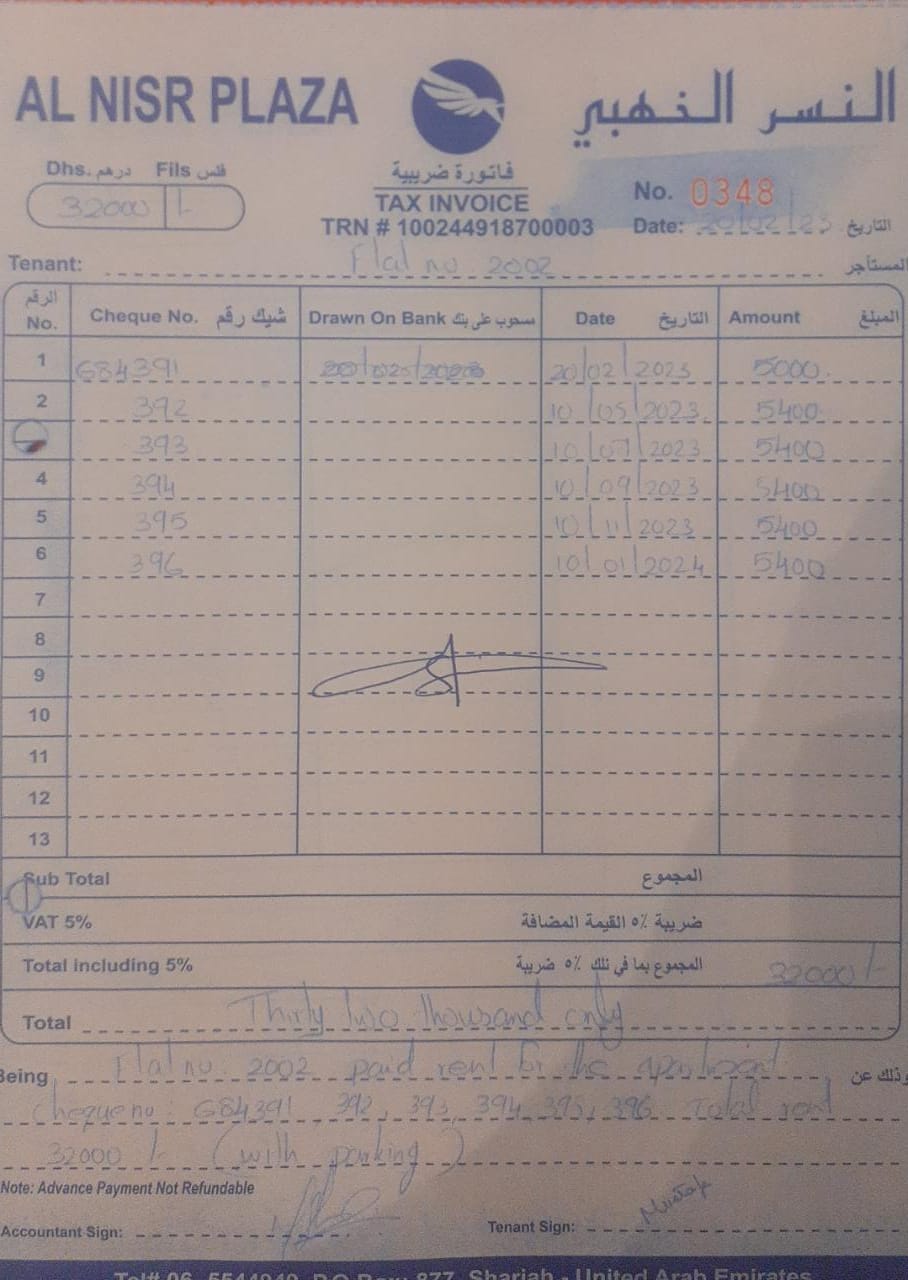 AL NISR PLAZA
النسر الذهبي
Dhs. درهم Fils فلس
32000 /-
فاتورة ضريبية
TAX INVOICE
TRN # 100244918700003
No. 0348
Date: 20/02/23 التاريخ
Tenant: Flat no 2002 المستأجر
الرقم No. Cheque No. شيك رقم Drawn On Bank مسحوب على بنك Date التاريخ Amount المبلغ
1 684391 20/02/2023 5000
2 392 10/05/2023 5400
393 10/07/2023 5400
4 394 10/09/2023 5400
5 395 10/11/2023 5400
6 396 10/01/2024 5400
7
8
9
10
11
12
13
Sub Total المجموع
VAT 5% ضريبة ٥٪ القيمة المضافة
Total including 5% المجموع بما في ذلك ٥٪ ضريبة 32000/-
Total Thirty two thousand only
Being Flat no. 2002 paid rent for the apartment وذلك عن
Cheque no: 684391, 392, 393, 394, 395, 396 Total rent
32000 /- (with parking)
Note: Advance Payment Not Refundable
Accountant Sign: Tenant Sign:
877, Sharjah - United Arab Emirates